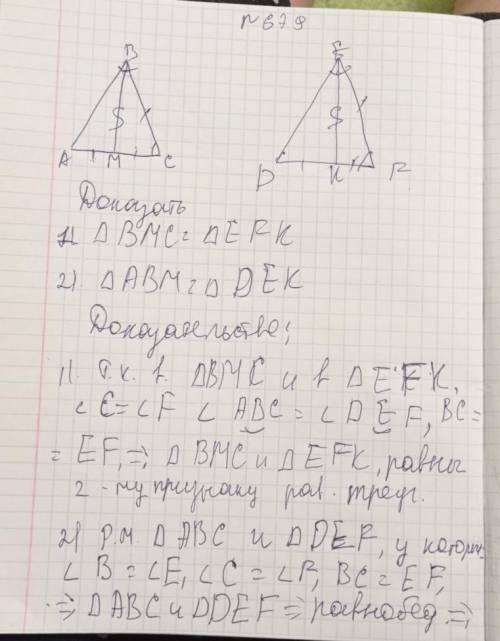 № 679
B
E
S
S
A
M
C
D
K
F
Доказать
1) △ BMC = △ EFK
2) △ ABM = △ DEK
Доказательство;
1) т.к. в △BMC и в △ EFK,
∠ C = ∠F ∠ ABC = ∠ DEF, BC =
= EF, ⇒ △ BMC и △ EFK, равны
2-му признаку рав. треуг.
2) р.м △ ABC и △ DEF, у котор.
∠ B = ∠E, ∠ C = ∠ F, BC = EF,
⇒ △ ABC и △ DEF ⇒ равнобед ⇒